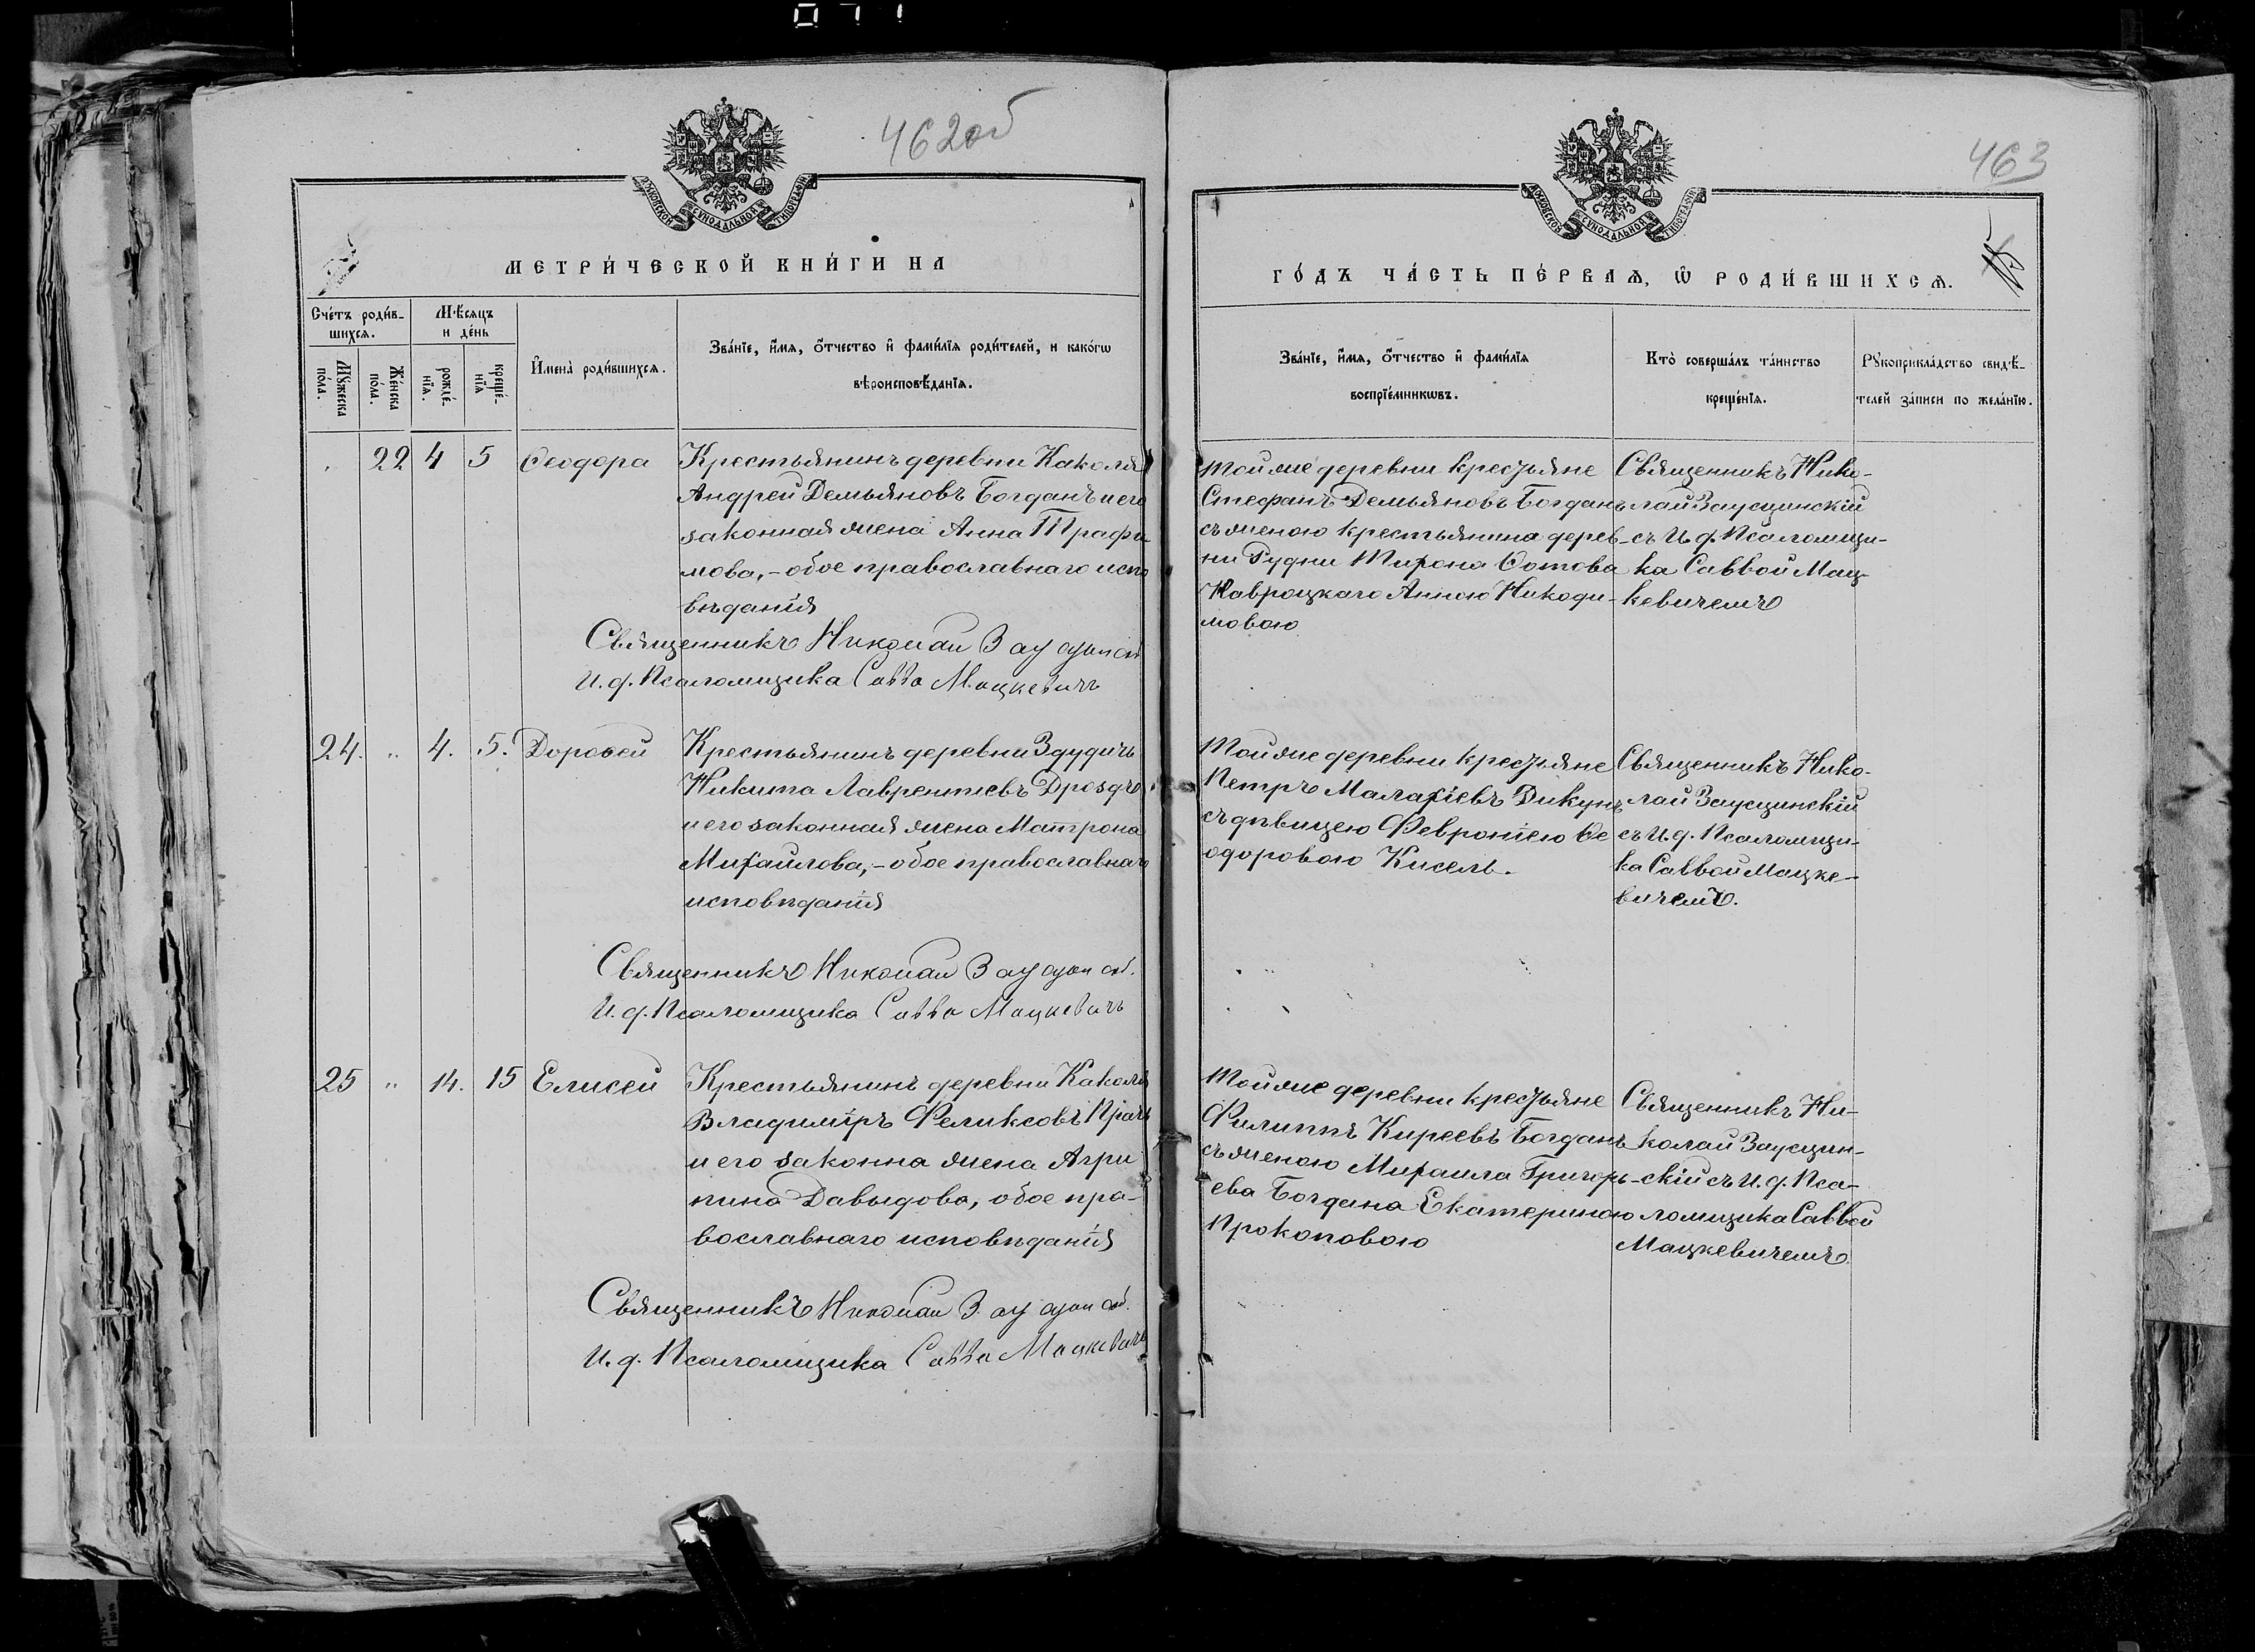 071
462об
МОСКОВСКОЙ СѴНОДАЛЬНОЙ ТИПОГРАФІИ
МЕТРИ́ЧЕСКОЙ КНИ́ГИ НА
Сче́тъ роди́в-
шихсѧ.
Мѣ́сѧцъ
и де́нь
Мꙋ́жеска
по́ла.
Же́нска
по́ла.
рожде́-
нїѧ.
креще́-
нїѧ
И҆мена̀ роди́вшихсѧ.
Зва́нїе, и҆́мѧ, ѻ҆́тчество и҆ фами́лїѧ роди́телей, и како́гѡ
вѣроисповѣ́данїѧ.
22 4 5 Ѳеодора Крестьянинъ деревни Каколя
Андрей Демьяновъ Богданъ и его
законная жена Анна Трафи
мова,-обое православнаго испо
вѣданія
Священникъ Николай Заусцинскій
И. д. Псаломщика Савва Мацкевичъ
24. " 4. 5. Дороѳей Крестьянинъ деревни Здудичъ
Никита Лаврентіевъ Дроздъ
и его законная жена Матрона
Михайлова,-обое православнаго
исповѣданія
Священникъ Николай Заусцинскій.
И. д. Псаломщика Савва Мацкевичъ
25 " 14. 15 Елисей Крестьянинъ деревни Каколя
Владиміръ Феликсовъ
и его законна жена Агри
пина Давыдова, обое пра-
вославнаго исповѣданія
Священникъ Николай Заусцинскій.
И. д. Псаломщика Савва Мацкевичъ
463
МОСКОВСКОЙ СѴНОДАЛЬНОЙ ТИПОГРАФІИ
ГО́ДЪ ЧА́СТЬ ПЕ́РВАѦ, Ѡ҆ РОДИ́ВШИХСѦ.
Зва́нїе, и҆́мѧ, ѻ҆́тчество и҆ фами́лїѧ
воспрїе́мникѡвъ.
Кто̀ соверша́лъ та́инство
креще́нїѧ.
Рꙋкоприкла́дство свидѣ́-
телей за́писи по жела́нїю.
Той же деревни крестьяне
Стефанъ Демьяновъ Богданъ
съ женою крестьянина дерев-
ни Рудни Мирона Фотова
Навроцкаго Анною Никоди-
мовою
Священникъ Нико-
лай Заусцинскій
съ И. д. Псаломщи-
ка Саввой Мац-
кевичемъ
Той же деревни крестьяне
Петръ Малахіевъ Дикунъ
съ дѣвицею Февроніею Ѳе
одоровою Кисель.
Священникъ Нико-
лай Заусцинскій
съ И. д. Псаломщи-
ка Саввой Мацке-
вичемъ.
Той же деревни крестьяне
Филиппъ Киреевъ Богданъ
съ женою Михаила Григорь-
ева Богдана Екатериною
Прокоповою
Священникъ Ни-
колай Заусцин-
скій съ И. д. Пса-
ломщика Саввой
Мацкевичемъ.